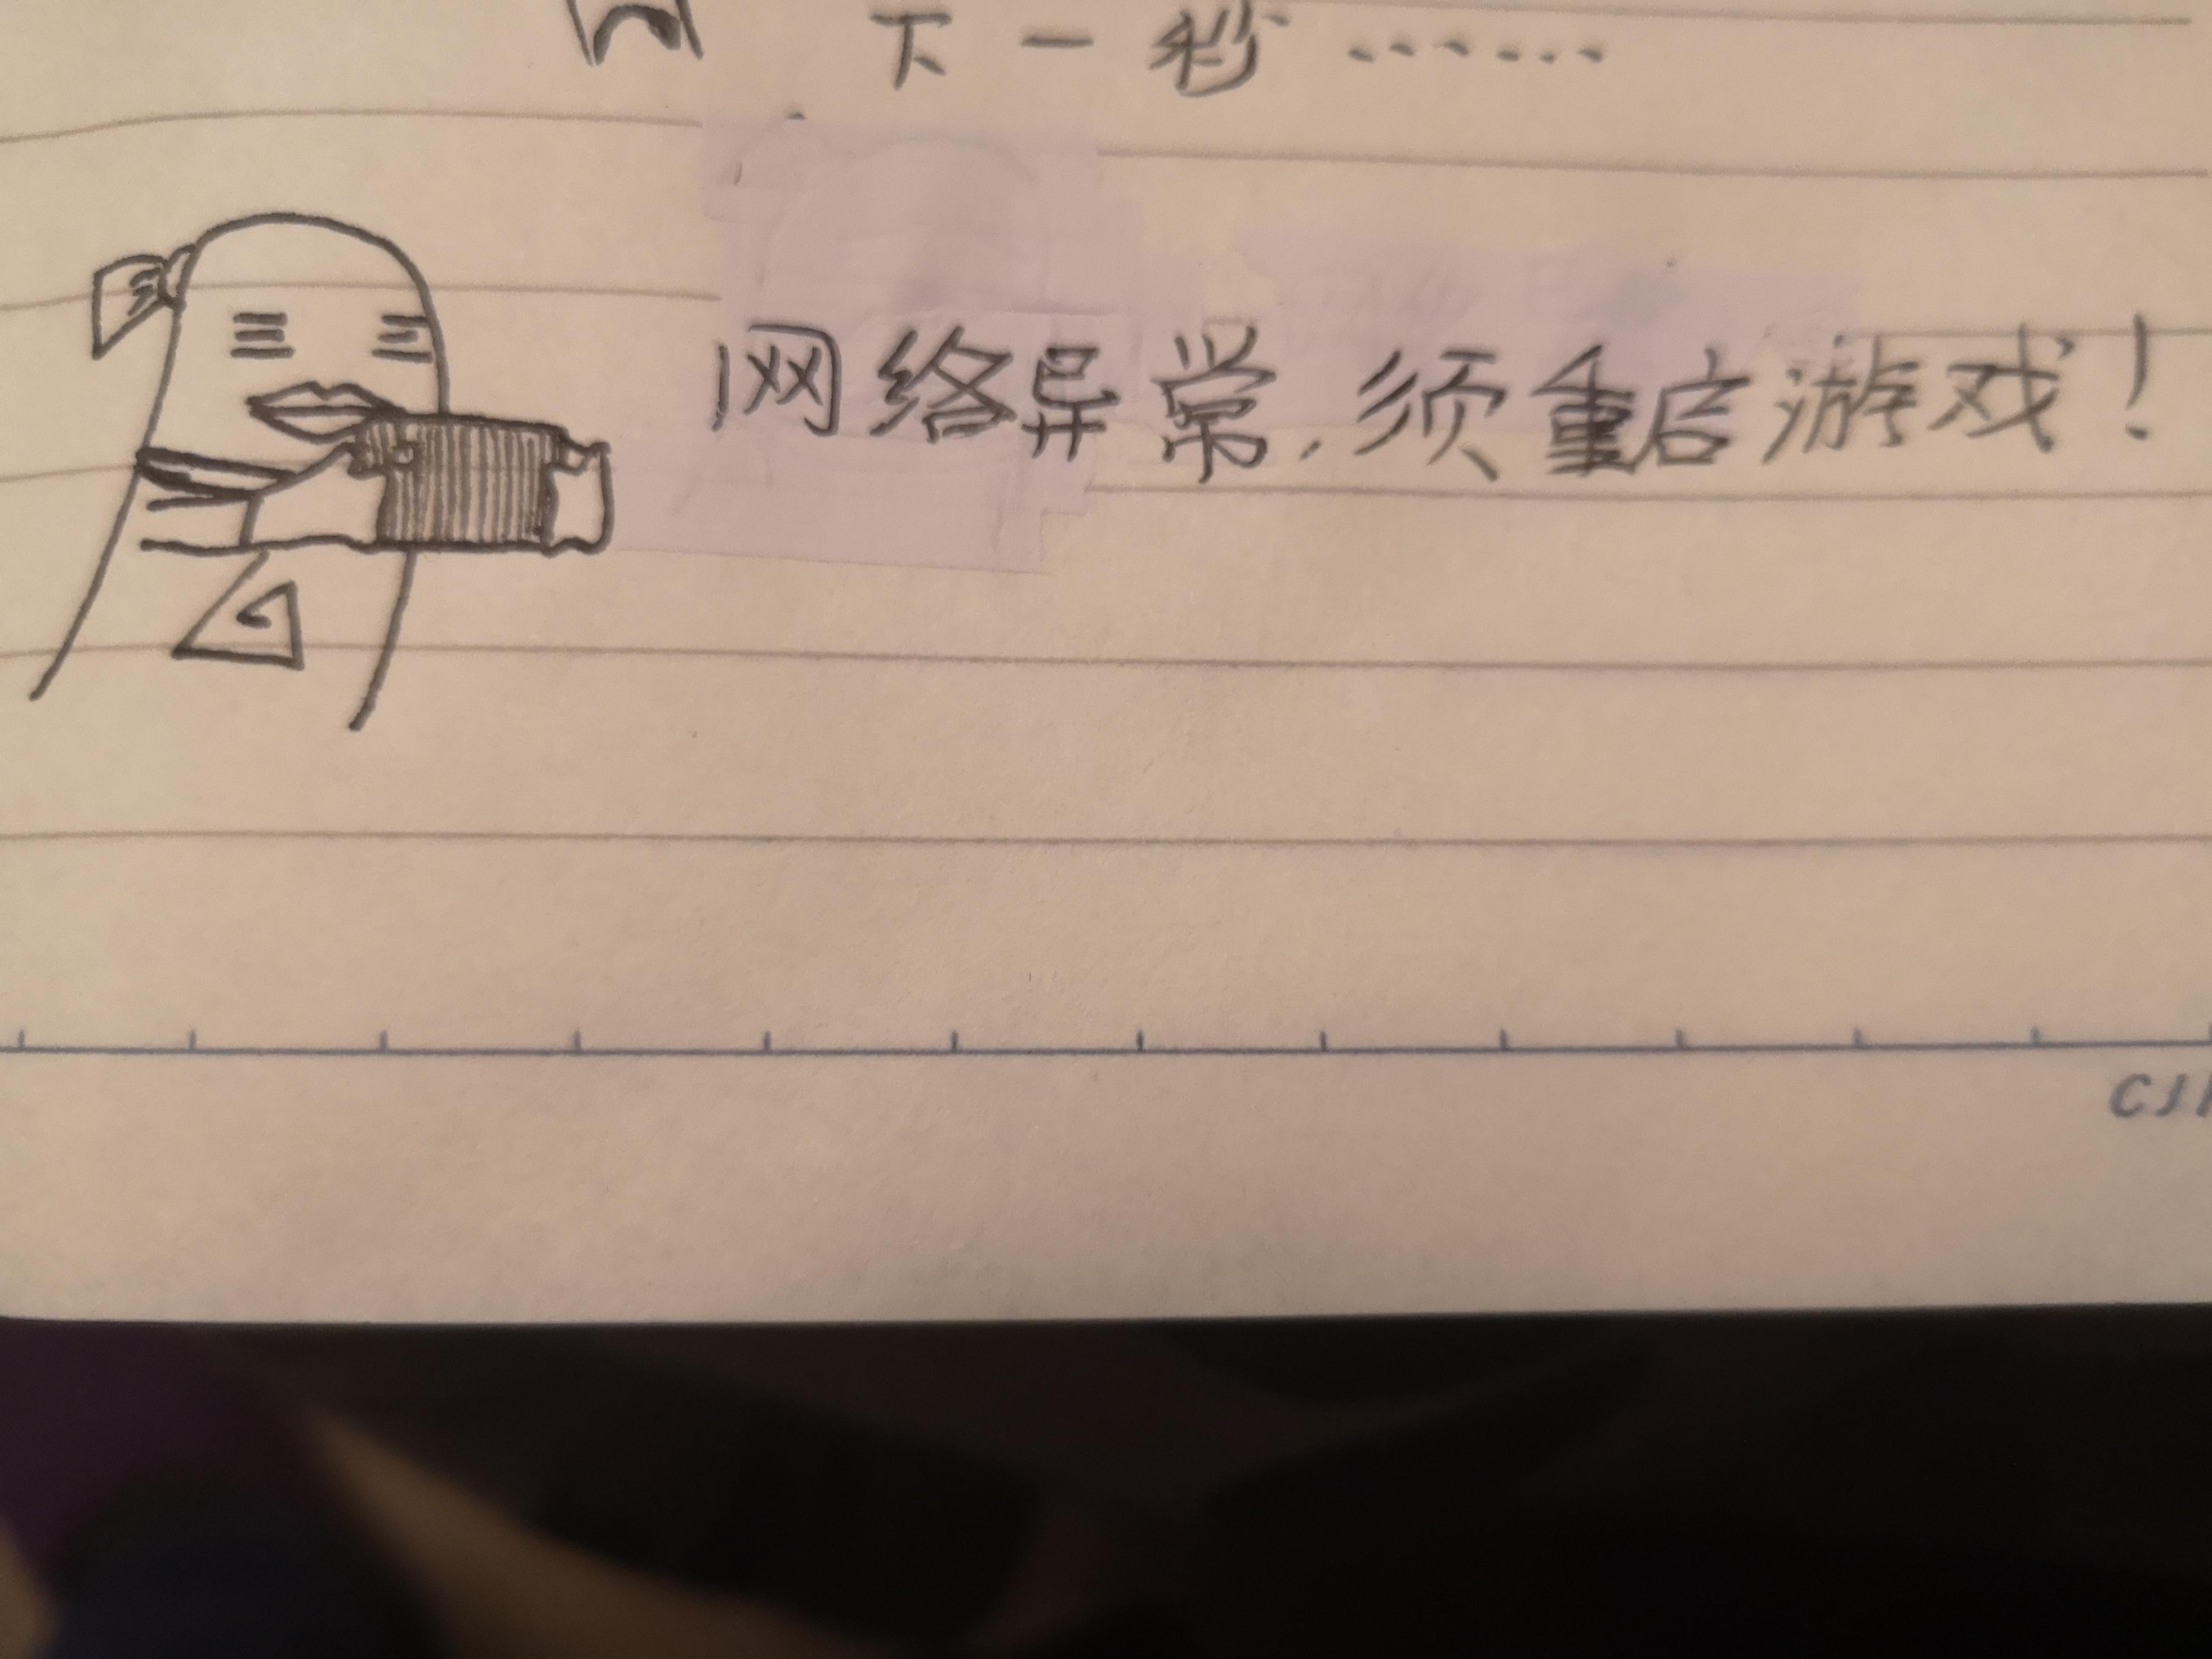 下一秒……
网络异常,须重启游戏!